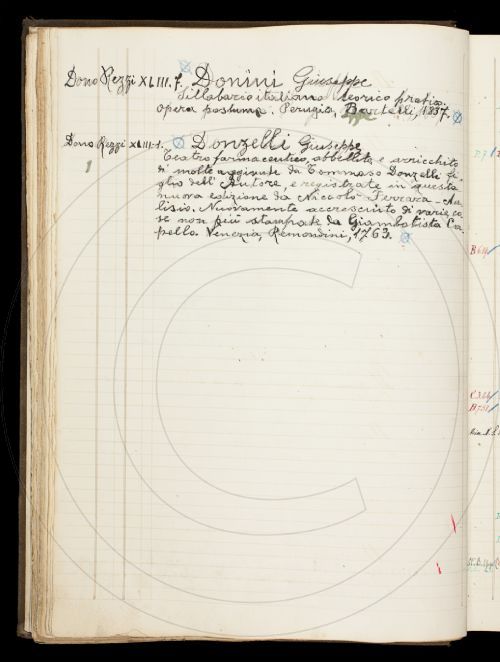 Dono Rezzi XLIII.7. Donini Giuseppe
Sillabario italiano teorico pratico.
Opera postuma. Perugia, Bartelli, 1837.
Dono Rezzi XLIII.1. Donzelli Giuseppe
1 Teatro farmaceutico, abbellito e arricchito
di molte aggiunte da Tommaso Donzelli fi-
glio dell'Autore, e registrate in questa
nuova edizione da Niccolò Ferrara-Au-
lisio. Nuovamente accresciuto di varie co-
se non più stampate da Giambatista Ca-
pello. Venezia, Remondini, 1763.